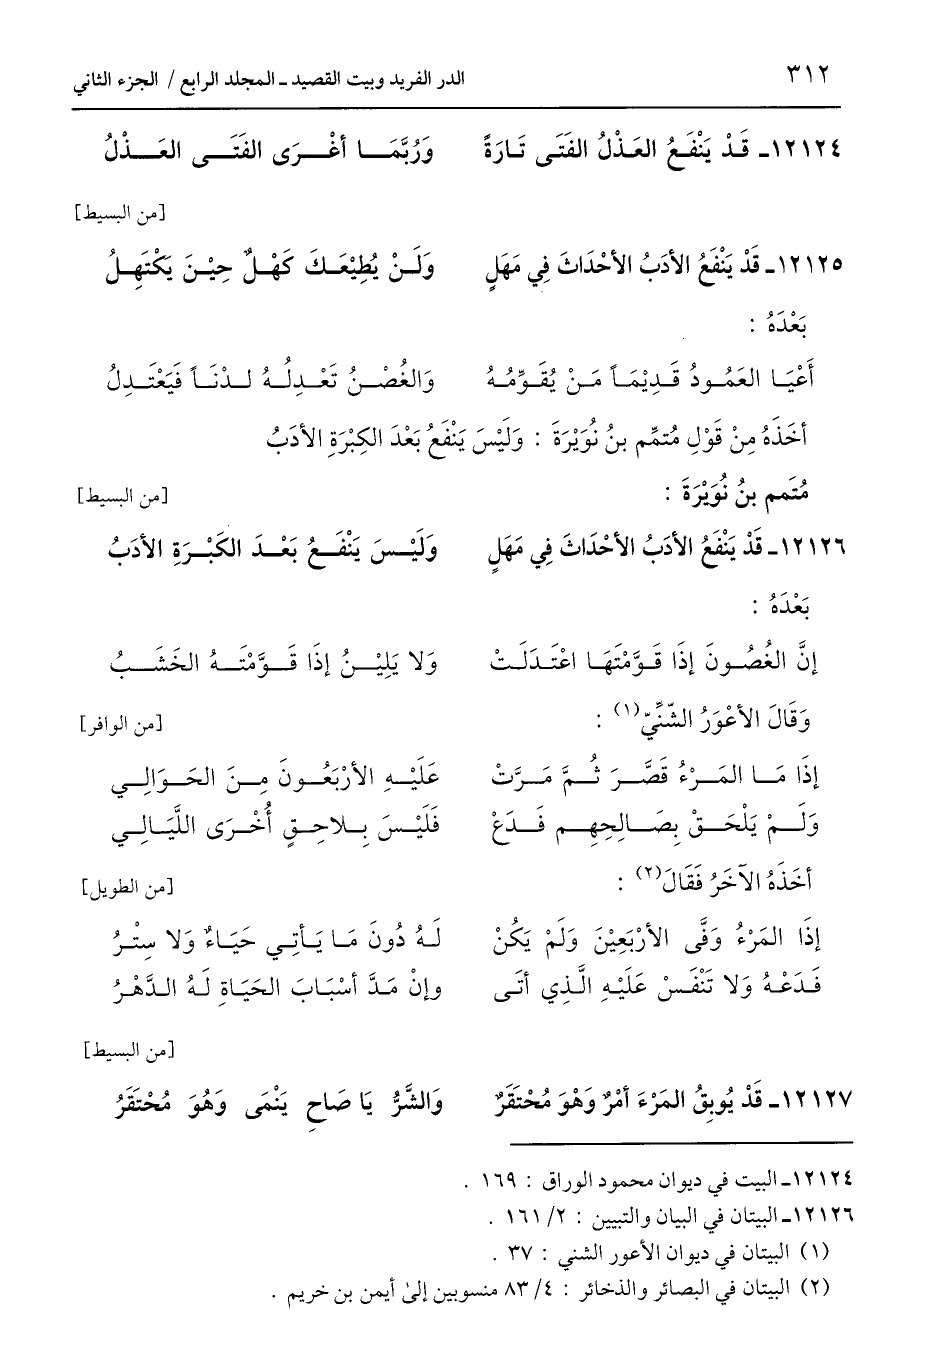 ٣١٢ الدر الفريد وبيت القصيد ـ المجلد الرابع / الجزء الثاني
١٢١٢٤ـ قَدْ يَنْفَعُ العَذْلُ الفَتَى تَارَةً وَرُبَّمَا أغْرَى الفَتَى العَذْلُ
[من البسيط]
١٢١٢٥ـ قَدْ يَنْفَعُ الأدَبُ الأحْدَاثَ فِي مَهَلٍ وَلَنْ يُطِيْعَكَ كَهْلٌ حِيْنَ يَكْتَهِلُ
بَعْدَهُ :
أَعْيَا العَمُودُ قَدِيْمَاً مَنْ يُقَوِّمُهُ وَالغُصْنُ تَعْدِلُهُ لدْنَاً فَيَعْتَدِلُ
أخَذَهُ مِنْ قَوْلِ مُتمِّم بنُ نُوَيْرَةَ : وَلَيسَ يَنْفَعُ بَعْدَ الكِبْرَةِ الأدَبُ
مُتَمم بنُ نُوَيْرَةَ : [من البسيط]
١٢١٢٦ـ قَدْ يَنْفَعُ الأدَبُ الأحْدَاثَ فِي مَهَلٍ وَلَيْسَ يَنْفَعُ بَعْدَ الكَبْرَةِ الأدَبُ
بَعْدَهُ :
إنَّ الغُصُونَ إذَا قَوَّمْتَهَا اعْتَدَلَتْ وَلا يَلِيْنُ إذَا قَوَّمْتَهُ الخَشَبُ
وَقَالَ الأعْوَرُ الشَّنِّيّ(١) : [من الوافر]
إذَا مَا المَرْءُ قَصَّرَ ثُمَّ مَرَّتْ عَلَيْهِ الأرْبَعُونَ مِنَ الحَوَالِي
وَلَمْ يَلْحَقْ بِصَالِحِهِم فَدَعْ فَلَيْسَ بِلاحِقٍ أُخْرَى اللَّيَالِي
أخَذَهُ الآخَرُ فَقَالَ(٢) : [من الطويل]
إذَا المَرْءُ وَفَّى الأرْبَعِيْنَ وَلَمْ يَكُنْ لَهُ دُونَ مَا يَأتِي حَيَاءٌ وَلا سِتْرُ
فَدَعْهُ وَلا تَنْفَسْ عَلَيْهِ الَّذِي أتَى وإنْ مَدَّ أسْبَابَ الحَيَاةِ لَهُ الدَّهْرُ
[من البسيط]
١٢١٢٧ـ قَدْ يُوبِقُ المَرْءَ أمْرٌ وَهْوَ مُحْتَقَرٌ وَالشَّرُّ يَا صَاحِ يَنْمَى وَهُوَ مُحْتَقَرُ
١٢١٢٤ـ البيت في ديوان محمود الوراق : ١٦٩ .
١٢١٢٦ـ البيتان في البيان والتبيين : ٢/ ١٦١ .
(١) البيتان في ديوان الأعور الشني : ٣٧ .
(٢) البيتان في البصائر والذخائر : ٤/ ٨٣ منسوبين إلىٰ أيمن بن خريم .